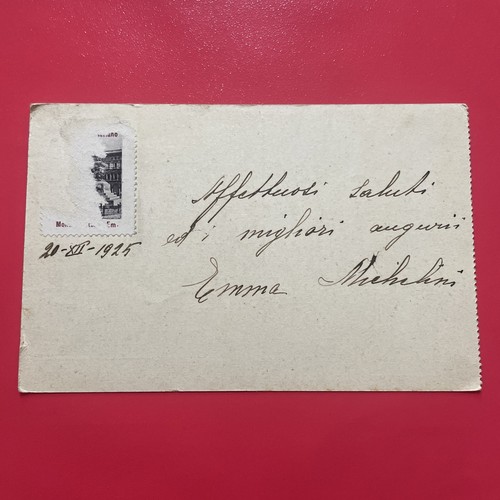 20-XII-1925
Affettuosi saluti
ed i migliori augurii
Emma Michelini